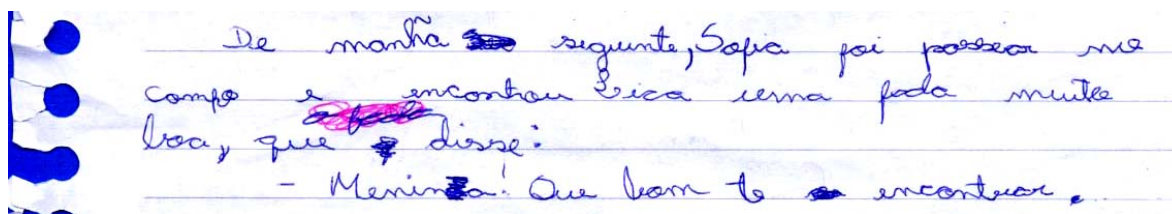 De manhã seguinte, Sofia foi passear no
campo e encontrou Lica uma fada muito
boa, que disse:
- Menina! Que bom te encontrar.